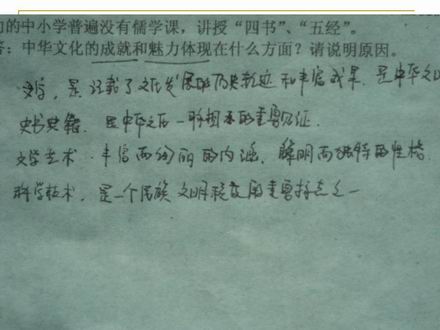 的中小学普遍没有儒学课，讲授“四书”、“五经”。
答：中华文化的成就和魅力体现在什么方面？请说明原因。
文字，是记载了文化发展的历史轨迹和丰富成果，是中华文明
史书典籍，是中华文化一脉相承的重要见证。
文学艺术，丰富而绚丽的内涵，鲜明而独特的性格
科学技术，是一个民族文明程度的重要标志之一